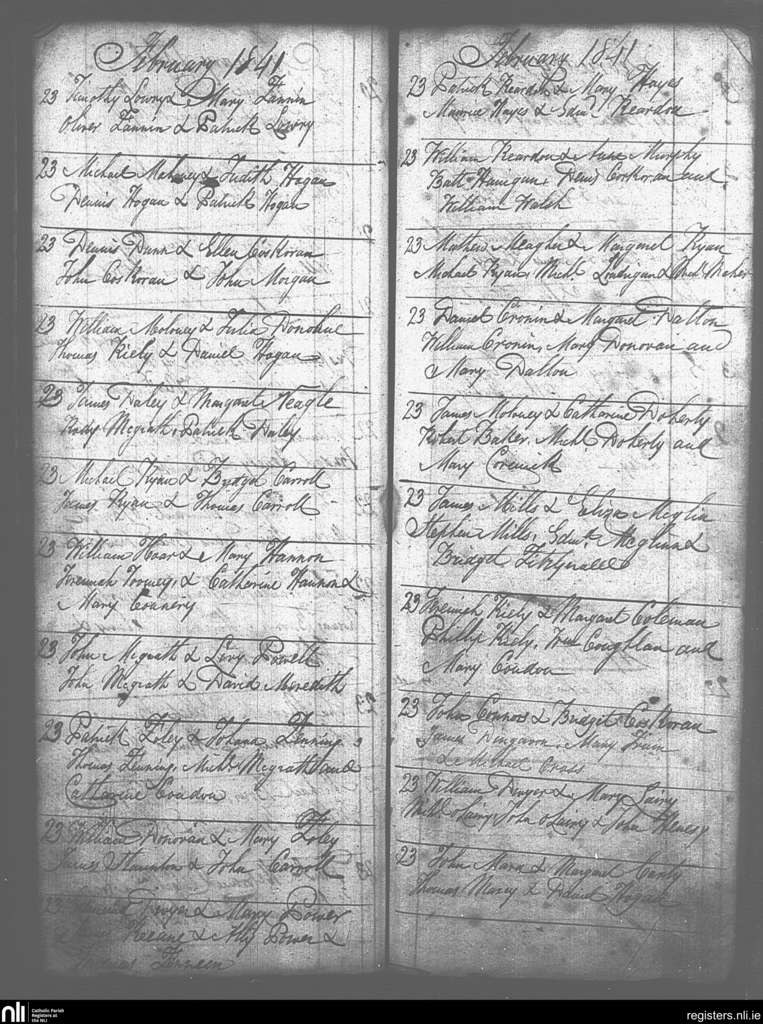 February 1841
23 Timothy Lowry & Mary Fannin
Oliver Fannin & Patrick Lowry
23 Michael Mahoney & Judith Hogan
Dennis Hogan & Patrick Hogan
23 Dennis Dunn & Ellen Corkoran
John Corkoran & John Morgan
23 William Moloney & Julia Donohue
Thomas Kiely & Daniel Hogan
23 James Daley & Margaret Neagle
Mcgrath, Patrick Daley
23 Michael Ryan & Bridget Carroll
James Ryan & Thomas Carroll
23 William Hoar & Mary Hannon
Jeremiah Toomey, & Catherine Hannon &
Mary Connery
23 John Mcgrath & Lucy Powell
John Mcgrath & David Meredith
23 Patrick Foley & Johana Denning
Thomas Denning, Michl Mcgrath and
Catherine Condon
23 William Donovan & Mary Foley
James & John Carroll
23 Dwyer & Mary Power
Keane & Ally Power &
Fenneen
February 1841
23 Patrick Reardon & Mary Hayes
Maurice Hayes & Saml Reardon
23 William Reardon & Anne Murphy
Batt Hanigan, Denis Corkoran and
William Walsh
23 Mathew Meagher & Margaret Ryan
Michael Ryan, Michl Lonergan & Michl Maher
23 Daniel Cronin & Margaret Dalton
William Cronin, Mary Donovan and
Mary Dalton
23 James Moloney & Catherine Doherty
Robert Baker, Michl Doherty and
Mary Cormick
23 James Mills & Eliza Meglin
Stephen Mills, Edwd Meglin &
Bridget Fitzgerald
23 Jeremiah Kiely & Margaret Coleman
Phillip Kiely, Wm Coughlan and
Mary Condon
23 John Connors & Bridget Corkoran
James Finganon, Mary
& Michael Cross
23 William Dwyer & Mary Lainy
Michl Lainy, John Lainy & John
23 John Mara & Margaret Canty
Thomas Maney & Daniel Hogan
nli
Catholic Parish
Registers at
the NLI
registers.nli.ie